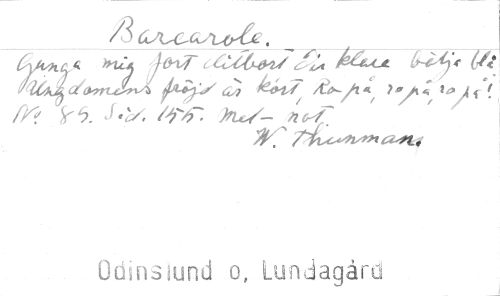 Barcarole.
Gunga mig fort ditbort Du klara bölja blå
Ungdomens fröjd är kort, Ro på, ro på, ro på!
No 85. Sid. 155. Mel- not
W. Thunman.
Odinslund o, Lundagård